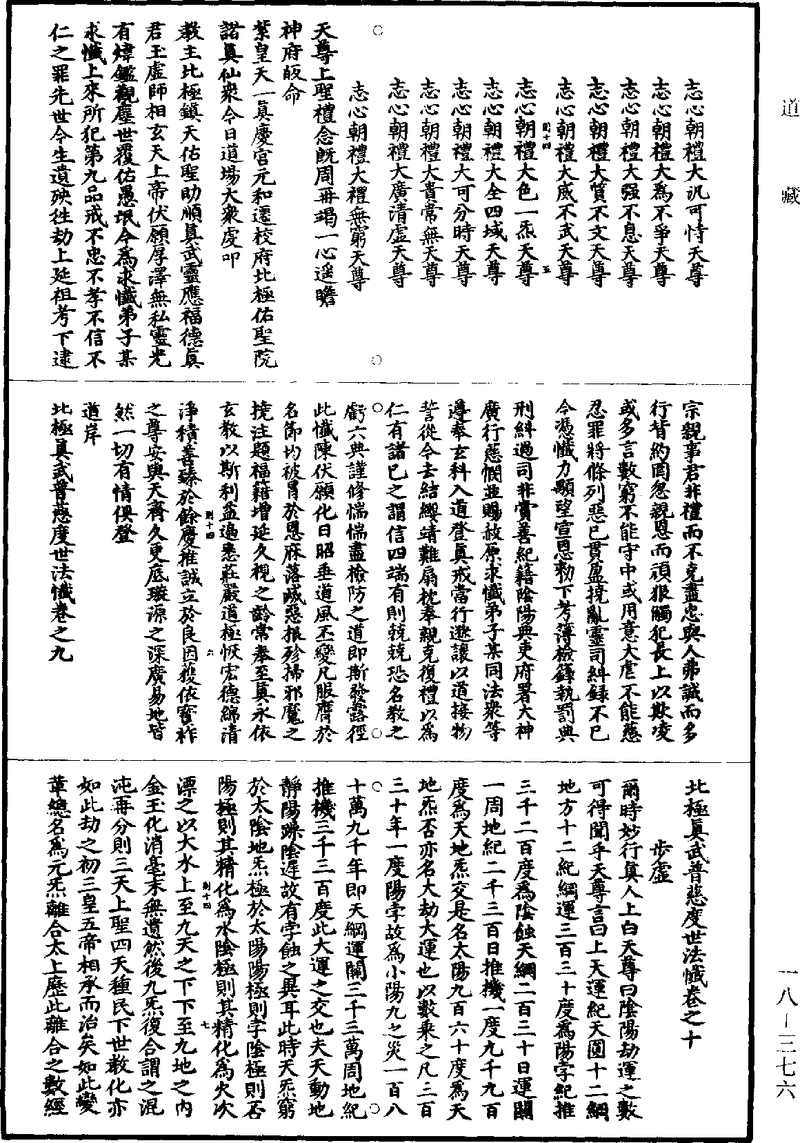 道藏
志心朝禮大汎可恃天尊
志心朝禮大為不爭天尊
志心朝禮大强不息天尊
志心朝禮大質不文天尊
志心朝禮大威不武天尊
志心朝禮大色一炁天尊
志心朝禮大全四域天尊
志心朝禮大可分時天尊
志心朝禮大貴常無天尊
志心朝禮大廣清虛天尊
志心朝禮大禮無窮天尊
天尊上聖禮念旣周再竭一心遥瞻
神府皈命
紫皇天一真慶宫元和遷校府北極佑聖院
諸真仙衆今日道場大衆虔叩
教主北極鎮天佑聖助順真武靈應福德真
君玉虛師相玄天上帝伏願厚澤無私靈光
有煒鑑觀塵世覆佑愚氓今為求懺弟子某
求懺上來所犯第九品戒不忠不孝不信不
仁之罪先世今生遺殃徃劫上延祖考下逮
宗親事君非禮而不克盡忠與人弗誠而多
行背約罔忽親恩而頑狠觸犯長上以欺凌
或多言數窮不能守中或用意大虐不能慈
忍罪將條列惡已貫盈撓亂靈司糾錄不已
今憑懺力顒望宣恩勑下考簿檢録執罰典
刑糾過司非賞善紀籍陰陽典吏府署大神
廣行慈憫並賜赦原求懺弟子某同法衆等
遵奉玄科入道登真戒當行遜讓以道接物
誓從今去結纓靖難扇枕奉親克復禮以為
仁有諸已之謂信四端有則兢兢恐名教之
虧六典謹修惴惴盡檢防之道即斯發露徑
此懺陳伏願化日昭垂道風丕變凡服膺於
名節均被冐於恩庥落滅惡根殄掃邪魔之
撓注題福籍增延久視之齡常奉至真永依
玄教以斯利益遍悉莊嚴道極恢宏德綿清
淨積善臻於餘慶推誠立於良因蔭依寳祚
之尊安與天齊久更底璇源之深廣易地皆
然一切有情俱登
道岸
北極真武普慈度世法懺卷之九
北極真武普慈度世法懺卷之十
步虛
爾時妙行真人上白天尊曰陰陽劫運之數
可得聞乎天尊言曰上天運紀天圓十二綱
地方十二紀綱運三百三十度為陽孛紀推
三千二百度為陰蝕天綱二百三十日運關
一周地紀二千三百日推機一度九千九百
度為天地炁交是名太陽九百六十度為天
地炁否亦名大劫大運也以數乘之凡三百
三十年一度陽孛故為小陽九之災一百八
十萬九千年即天綱運關三千三萬周地紀
推機三千三百度此大運之交也夫天動地
靜陽躁陰遲故有孛蝕之異耳此時天炁窮
於太陰地炁極於太陽陽極則孛陰極則否
陽極則其精化為水陰極則其精化為火次
漂之以大水上至九天之下下至九地之内
金玉化消毫末無遺然後九炁復合謂之混
沌再分則三天上聖四天種民下世教化亦
如此劫之初三皇五帝相承而治矣如此變
革總名為元炁離合太上歷此離合之數經
一八—三七六